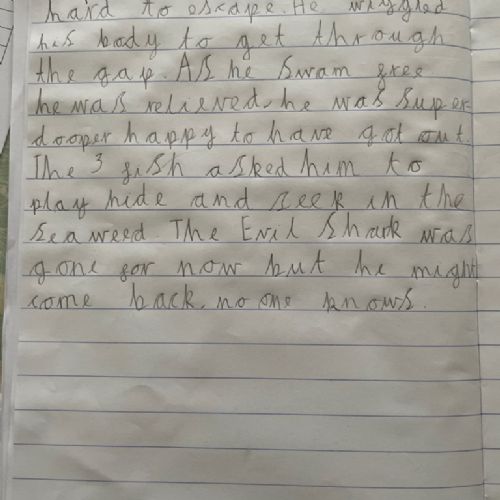 hard to escape. He wriggled
his body to get through
the gap. As he swam free
he was relieved, he was super
dooper happy to have got out.
The 3 fish asked him to
play hide and seek in the
seaweed. The Evil Shark was
gone for now but he might
come back. no one knows.